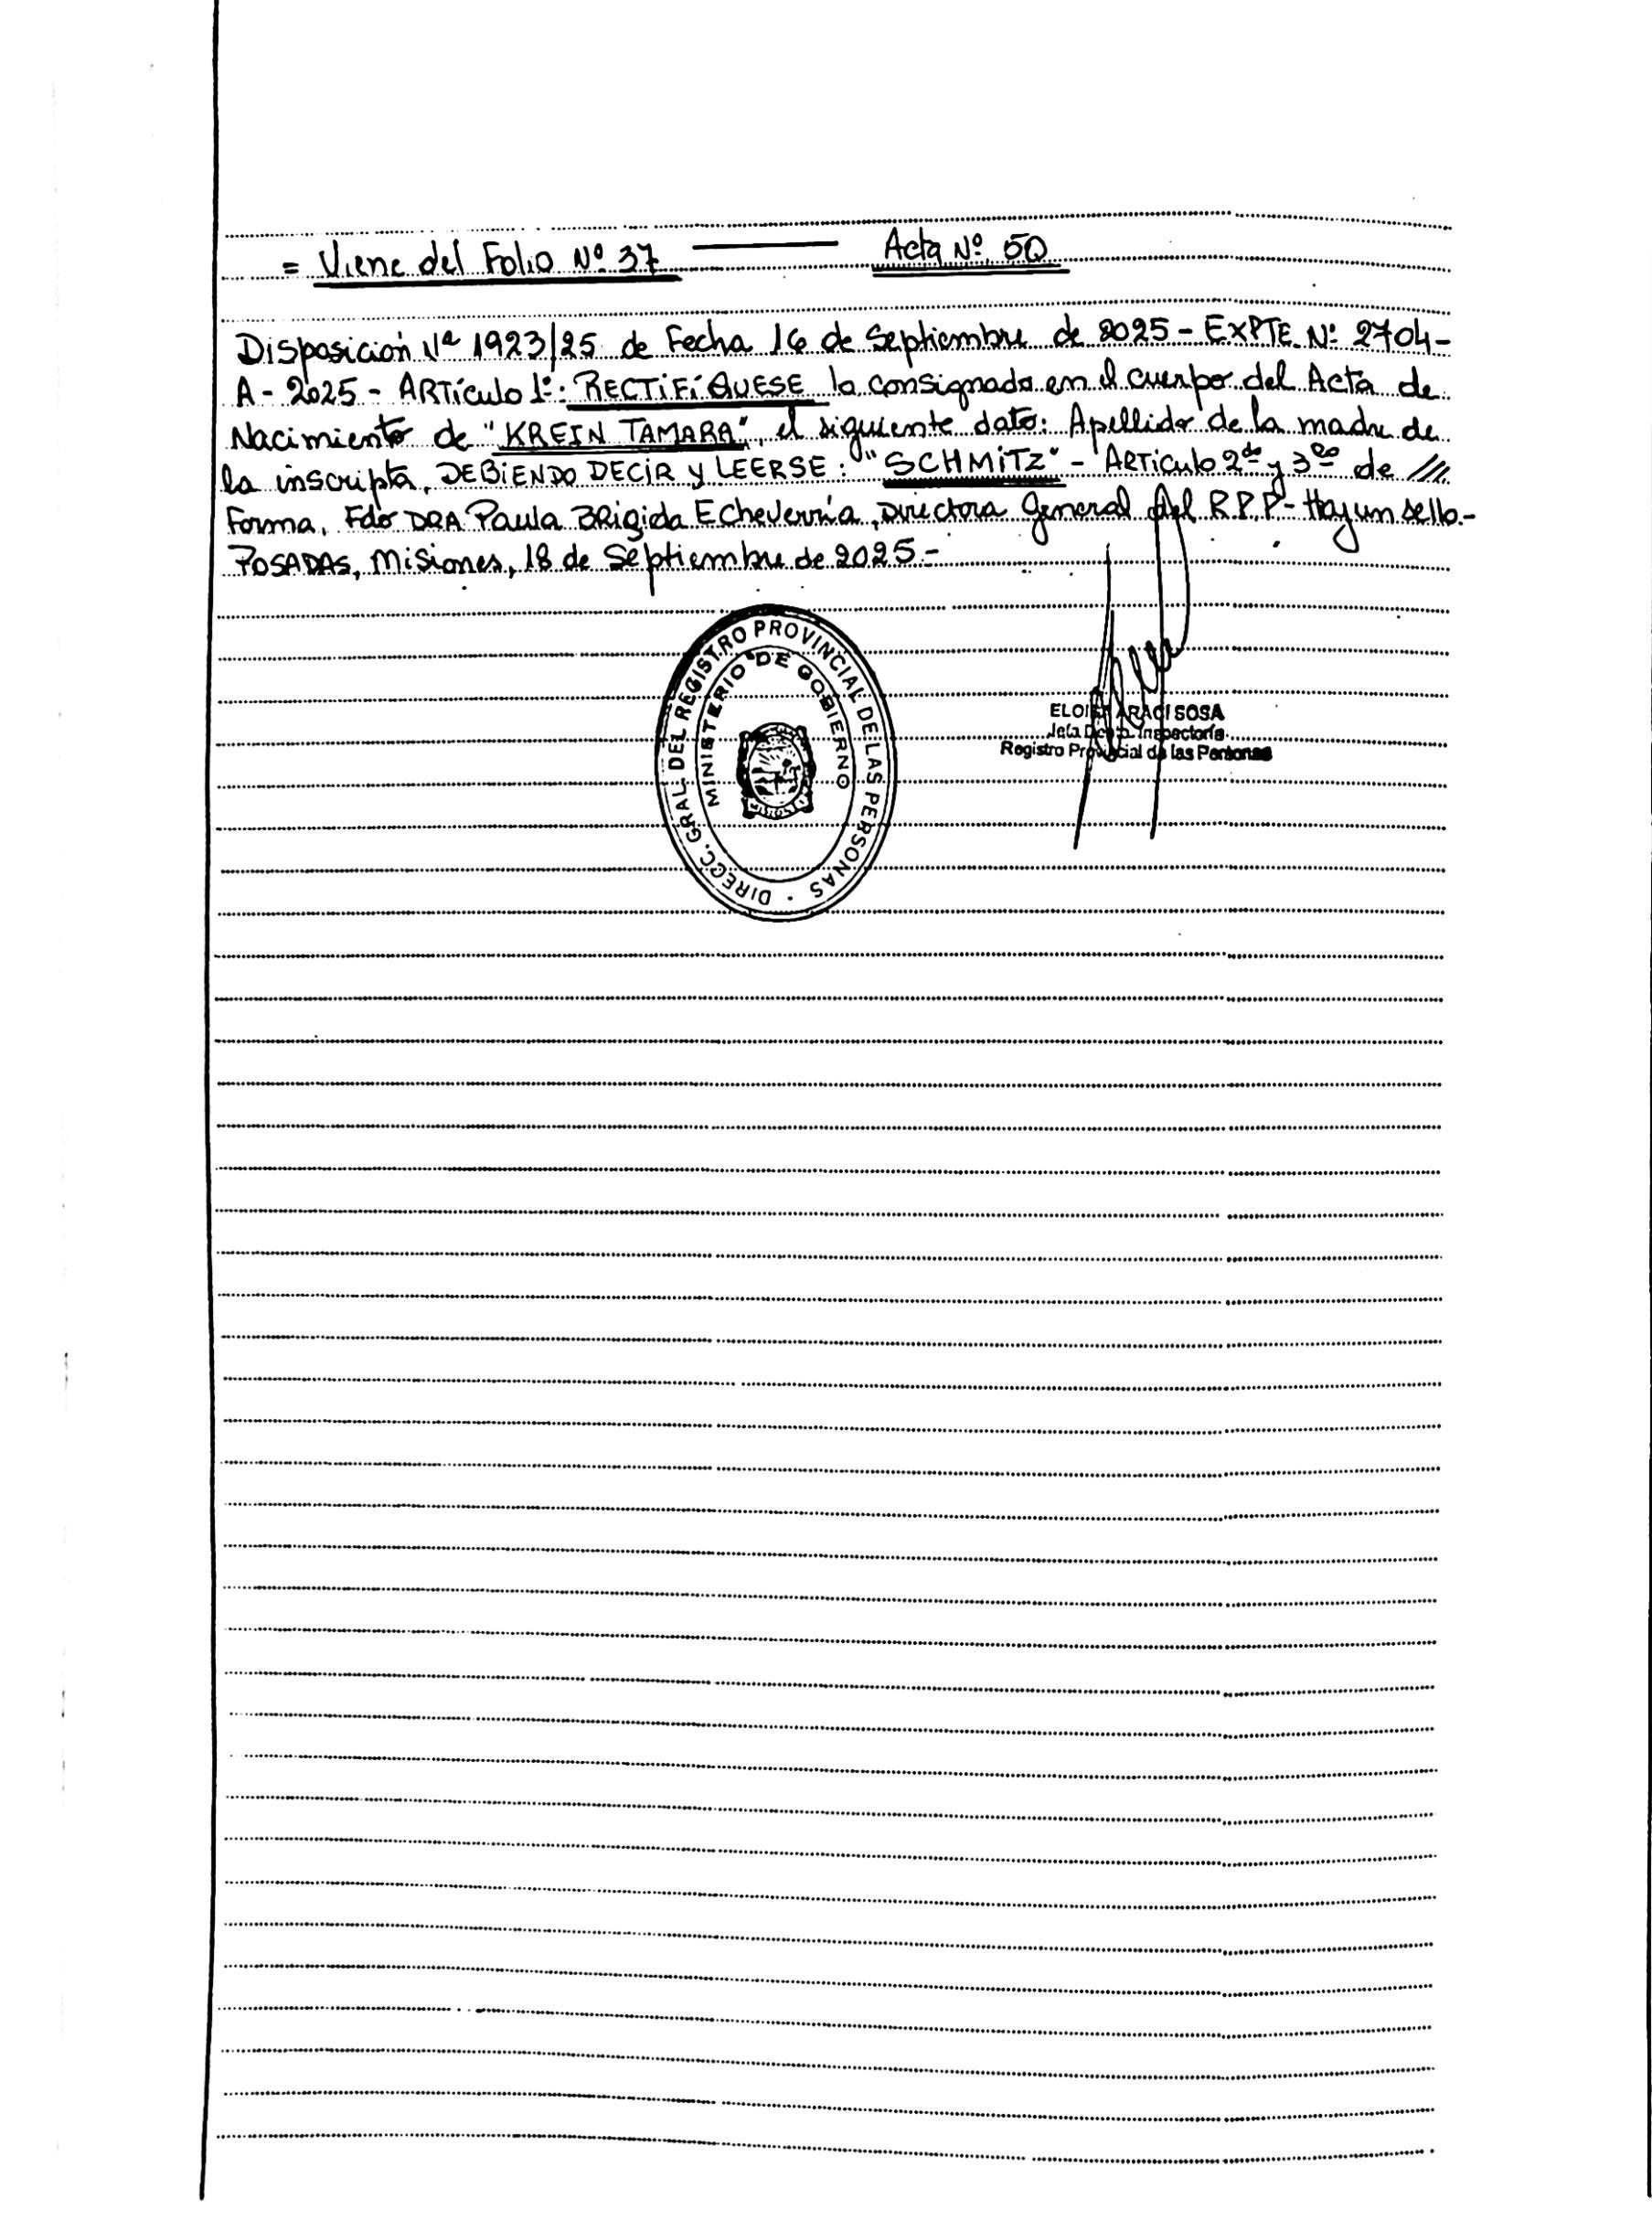 = Viene del Folio Nº 37 Acta Nº 50
Disposición Nº 1923/25 de Fecha 16 de Septiembre de 2025 - EXPTE Nº 2704-
A - 2025 - ARTÍculo 1º: RECTIFÍQUESE lo consignado en el cuerpo del Acta de
Nacimiento de "KREIN TAMARA", el siguiente dato: Apellido de la madre de
la inscripta, DEBIENDO DECIR y LEERSE: "SCHMITZ" - Artículo 2do y 3ro de ///
Forma, Fdo DRA Paula BRigida Echeverría, Directora General del R.P.P - Hay un sello.-
POSADAS, Misiones, 18 de Septiembre de 2025.-
DIRECC. GRAL. DEL REGISTRO PROVINCIAL DE LAS PERSONAS
MINISTERIO DE GOBIERNO
ARACI SOSA
Jefa Inspectoría
Registro Provincial de las Personas